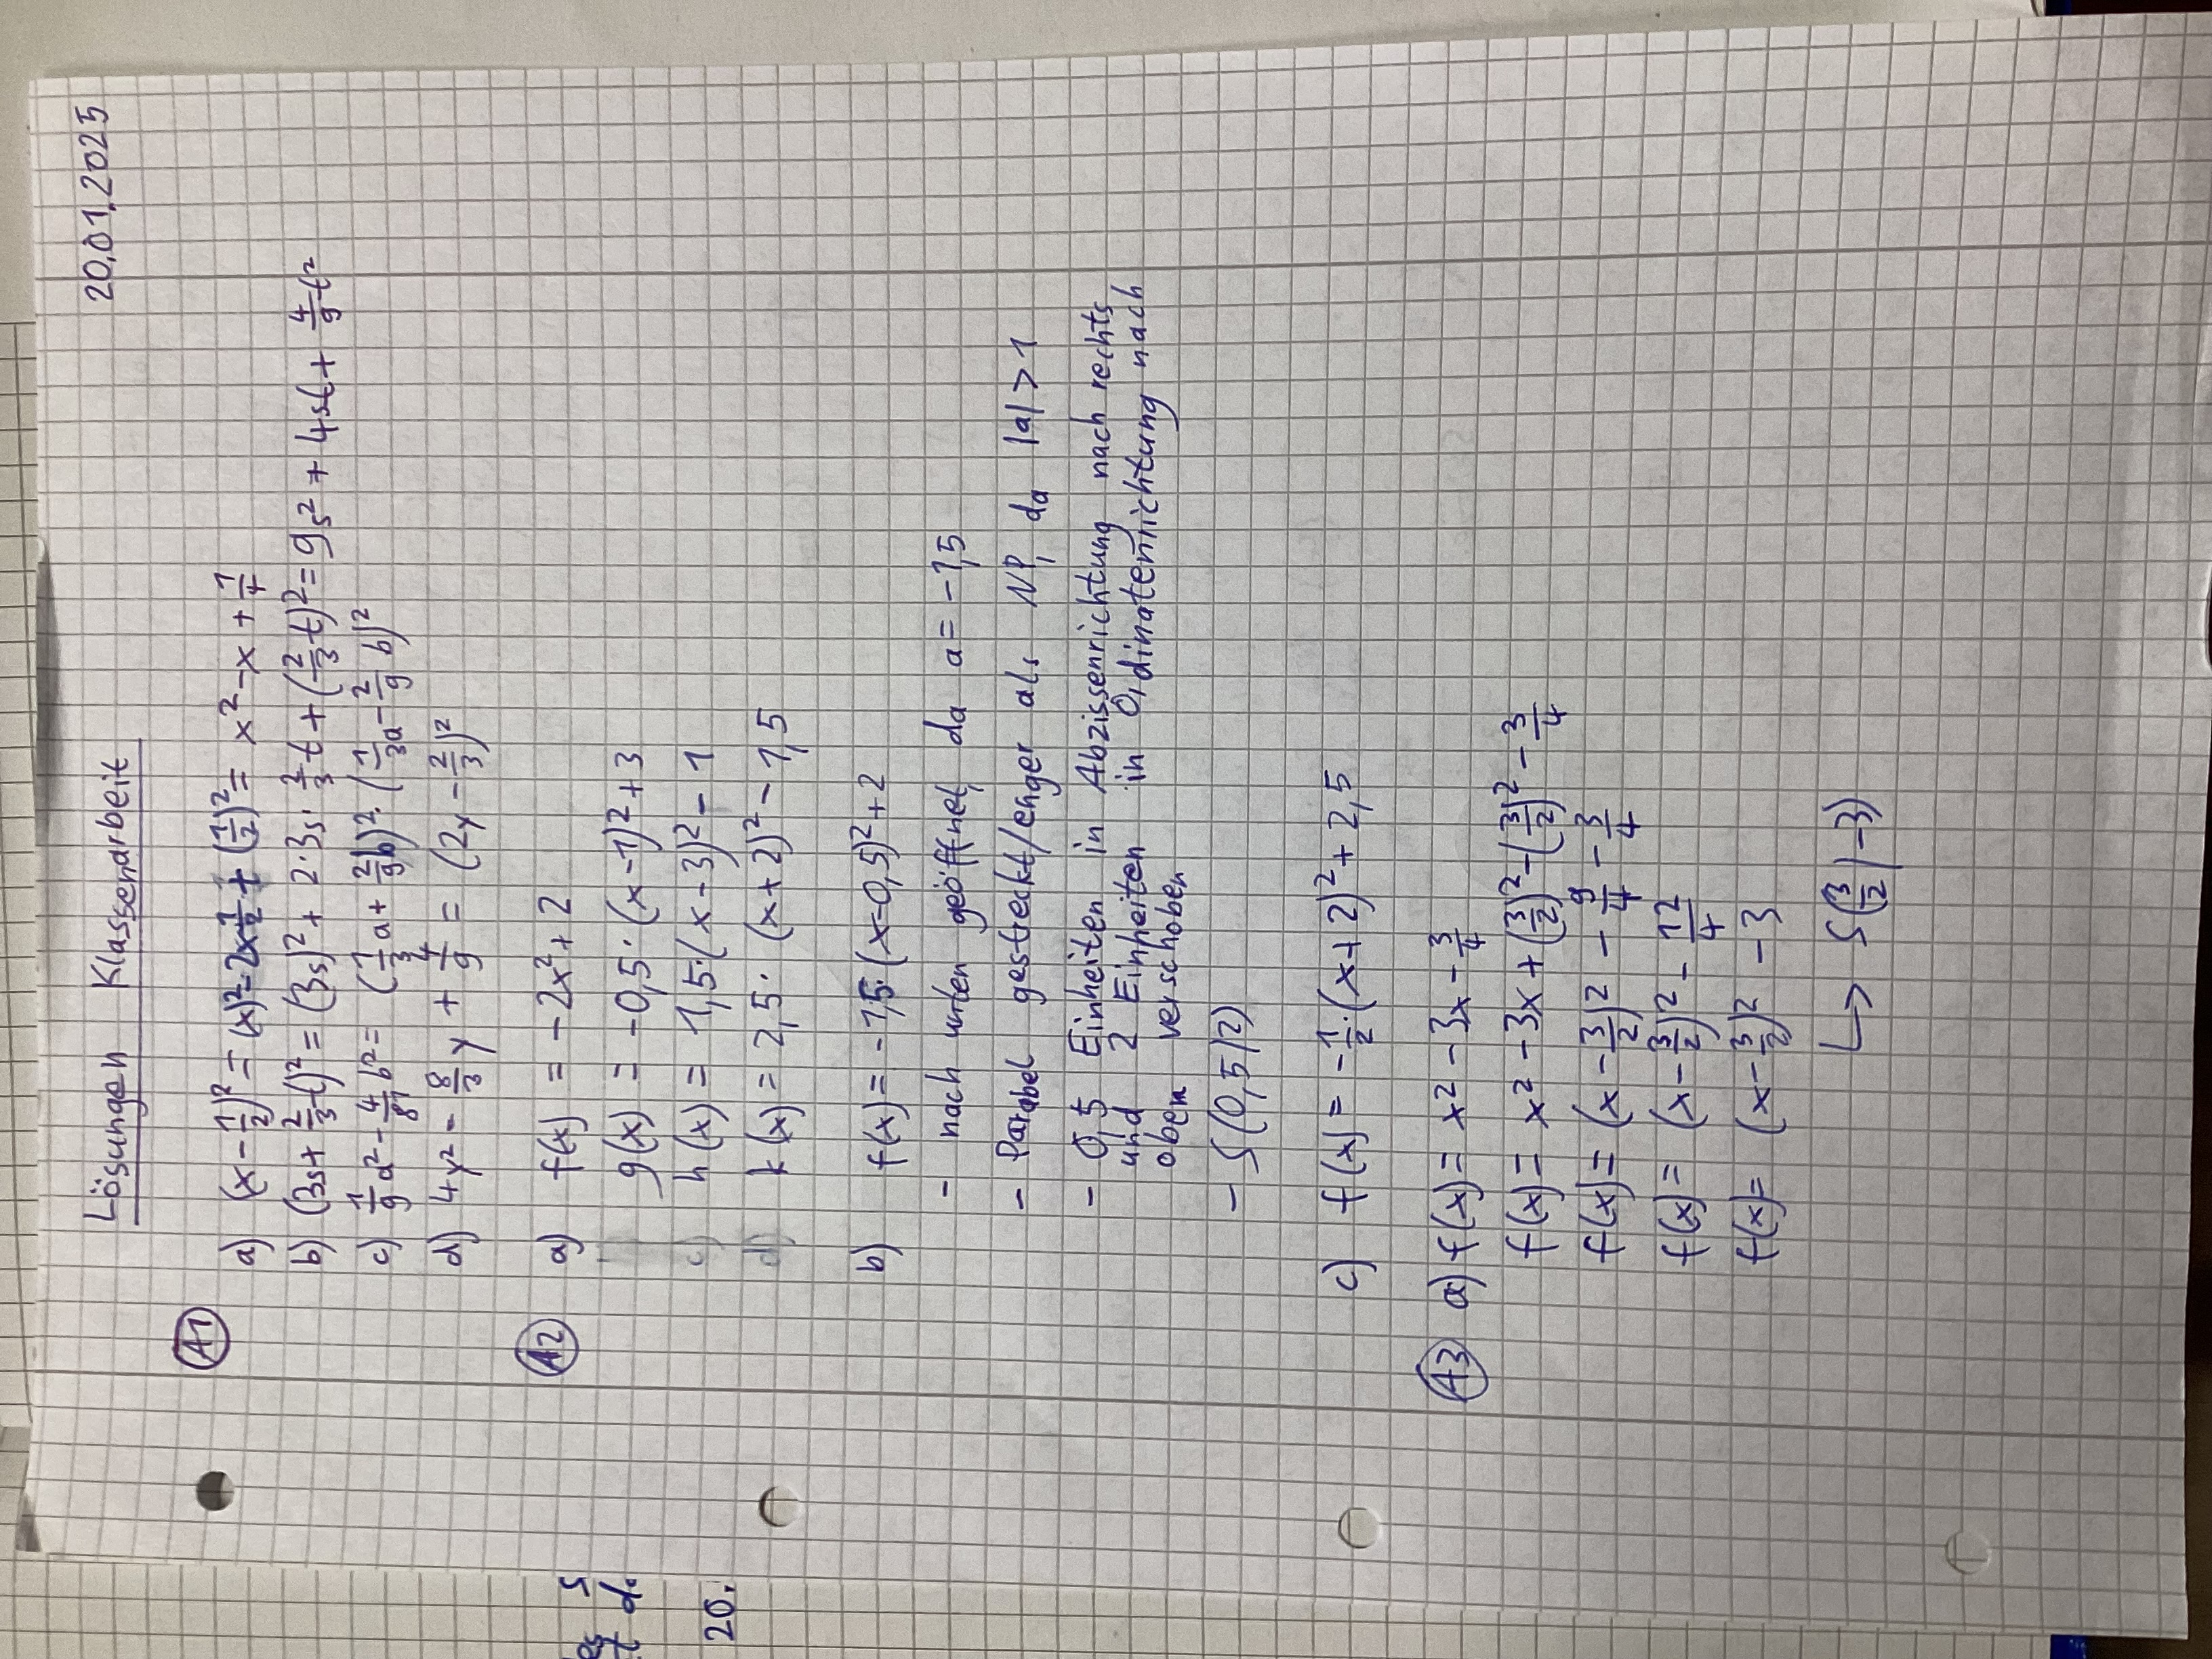 Lösungen Klassenarbeit 20.01.2025
A1
a) (x - 1/2)² = (x)² - 2x · 1/2 + (1/2)² = x² - x + 1/4
b) (3s + 2/3 t)² = (3s)² + 2·3s · 2/3 t + (2/3 t)² = 9s² + 4st + 4/9 t²
c) 1/9 a² - 4/81 b² = (1/3 a + 2/9 b)² · (1/3 a - 2/9 b)²
d) 4y² - 8/3 y + 4/9 = (2y - 2/3)²
A2
a) f(x) = -2x² + 2
g(x) = -0,5·(x-1)² + 3
c) h(x) = 1,5·(x-3)² - 1
d) k(x) = 2,5·(x+2)² - 1,5
b) f(x) = -1,5·(x-0,5)² + 2
- nach unten geöffnet, da a = -1,5
- Parabel gestreckt/enger als NP, da |a| > 1
- 0,5 Einheiten in Abzissenrichtung nach rechts
und 2 Einheiten in Ordinatenrichtung nach
oben verschoben
- S(0,5|2)
c) f(x) = -1/2·(x+2)² + 2,5
A3 a) f(x) = x² - 3x - 3/4
f(x) = x² - 3x + (3/2)² - (3/2)² - 3/4
f(x) = (x - 3/2)² - 9/4 - 3/4
f(x) = (x - 3/2)² - 12/4
f(x) = (x - 3/2)² - 3
↳ S(3/2|-3)
20.